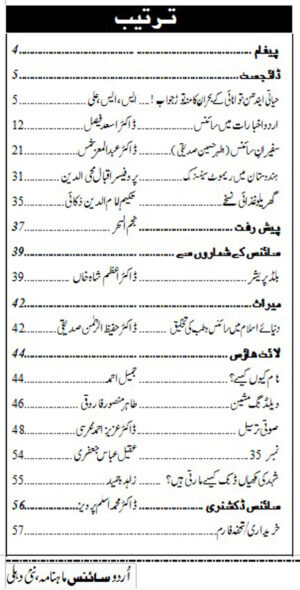 ترتیب
پیغام 4
ڈائجسٹ 5
حیاتی ایندھن توانائی کے بحران کا منفرد جواب!... ایس، ایس، علی 5
اردو اخبارات میں سائنس ڈاکٹر اسعد فیصل 12
سفیرانِ سائنس (اظہر حسین صدیقی) ڈاکٹر عبدالمعز شمس 21
ہندستان میں ریموٹ سینسنگ پروفیسر اقبال محی الدین 31
گھریلو غذائی نسخے حکیم امام الدین ذکائی 35
پیش رفت نجم السحر 37
سائنس کے شماروں سے 39
بلڈ پریشر ڈاکٹر اعظم شاہ خاں 39
میراث 42
دنیائے اسلام میں سائنس وطب کی تخلیق ڈاکٹر حفیظ الرحمٰن صدیقی 42
لائٹ ھاؤس 44
نام کیوں کیسے؟ جمیل احمد 44
ویلڈنگ مشین طاہر منصور فاروقی 46
صوتی ترسیل ڈاکٹر عزیز احمد عرسی 48
نمبر 35 عقیل عباس جعفری 54
شہد کی مکھیاں ڈنک کیسے مارتی ہیں؟ زاہد حمید 55
سائنس ڈکشنری ڈاکٹر محمد اسلم پرویز 56
خریداری/تحفہ فارم 57
اُردو سائنس ماہنامہ، نئی دہلی